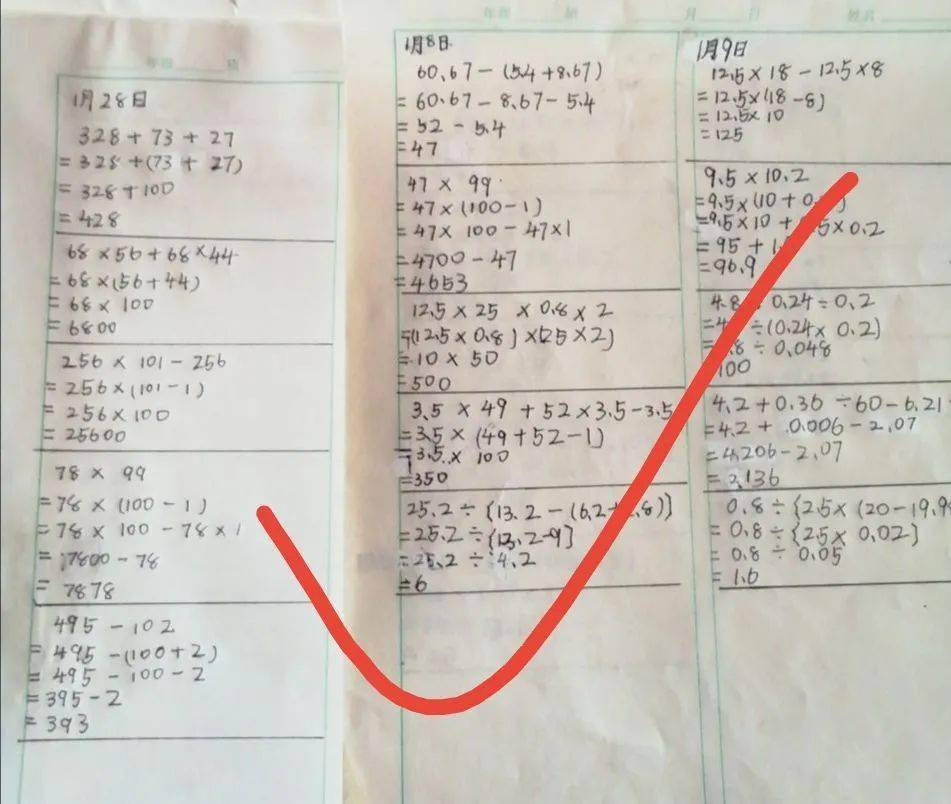 1月28日
328+73+27
=328+(73+27)
=328+100
=428
68×56+68×44
=68×(56+44)
=68×100
=6800
256×101-256
=256×(101-1)
=256×100
=25600
78×99
=78×(100-1)
=78×100-78×1
=7800-78
=7878
495-102
=495-(100+2)
=495-100-2
=395-2
=393
年级 班 月 日 姓名
1月8日
60.67-(5.4+8.67)
=60.67-8.67-5.4
=52-5.4
=47
47×99
=47×(100-1)
=47×100-47×1
=4700-47
=4653
12.5×25×0.8×2
=(12.5×0.8)×(25×2)
=10×50
=500
3.5×49+52×3.5-3.5
=3.5×(49+52-1)
=3.5×100
=350
25.2÷{13.2-(6.2+ .8)]
=25.2÷{13.2-9]
=25.2÷4.2
=6
1月9日
12.5×18-12.5×8
=12.5×(18-8)
=12.5×10
=125
9.5×10.2
=9.5×(10+0. )
=9.5×10+ .5×0.2
=95+1.
=96.9
4.8 0.24÷0.2
=4. ÷(0.24×0.2)
= .8÷0.048
100
4.2+0.36÷60-6.21
=4.2+0.006-2.07
=4.206-2.07
=2.136
0.8÷{2.5×(20-19.9
=0.8÷{2.5×0.02]
=0.8÷0.05
=1.6